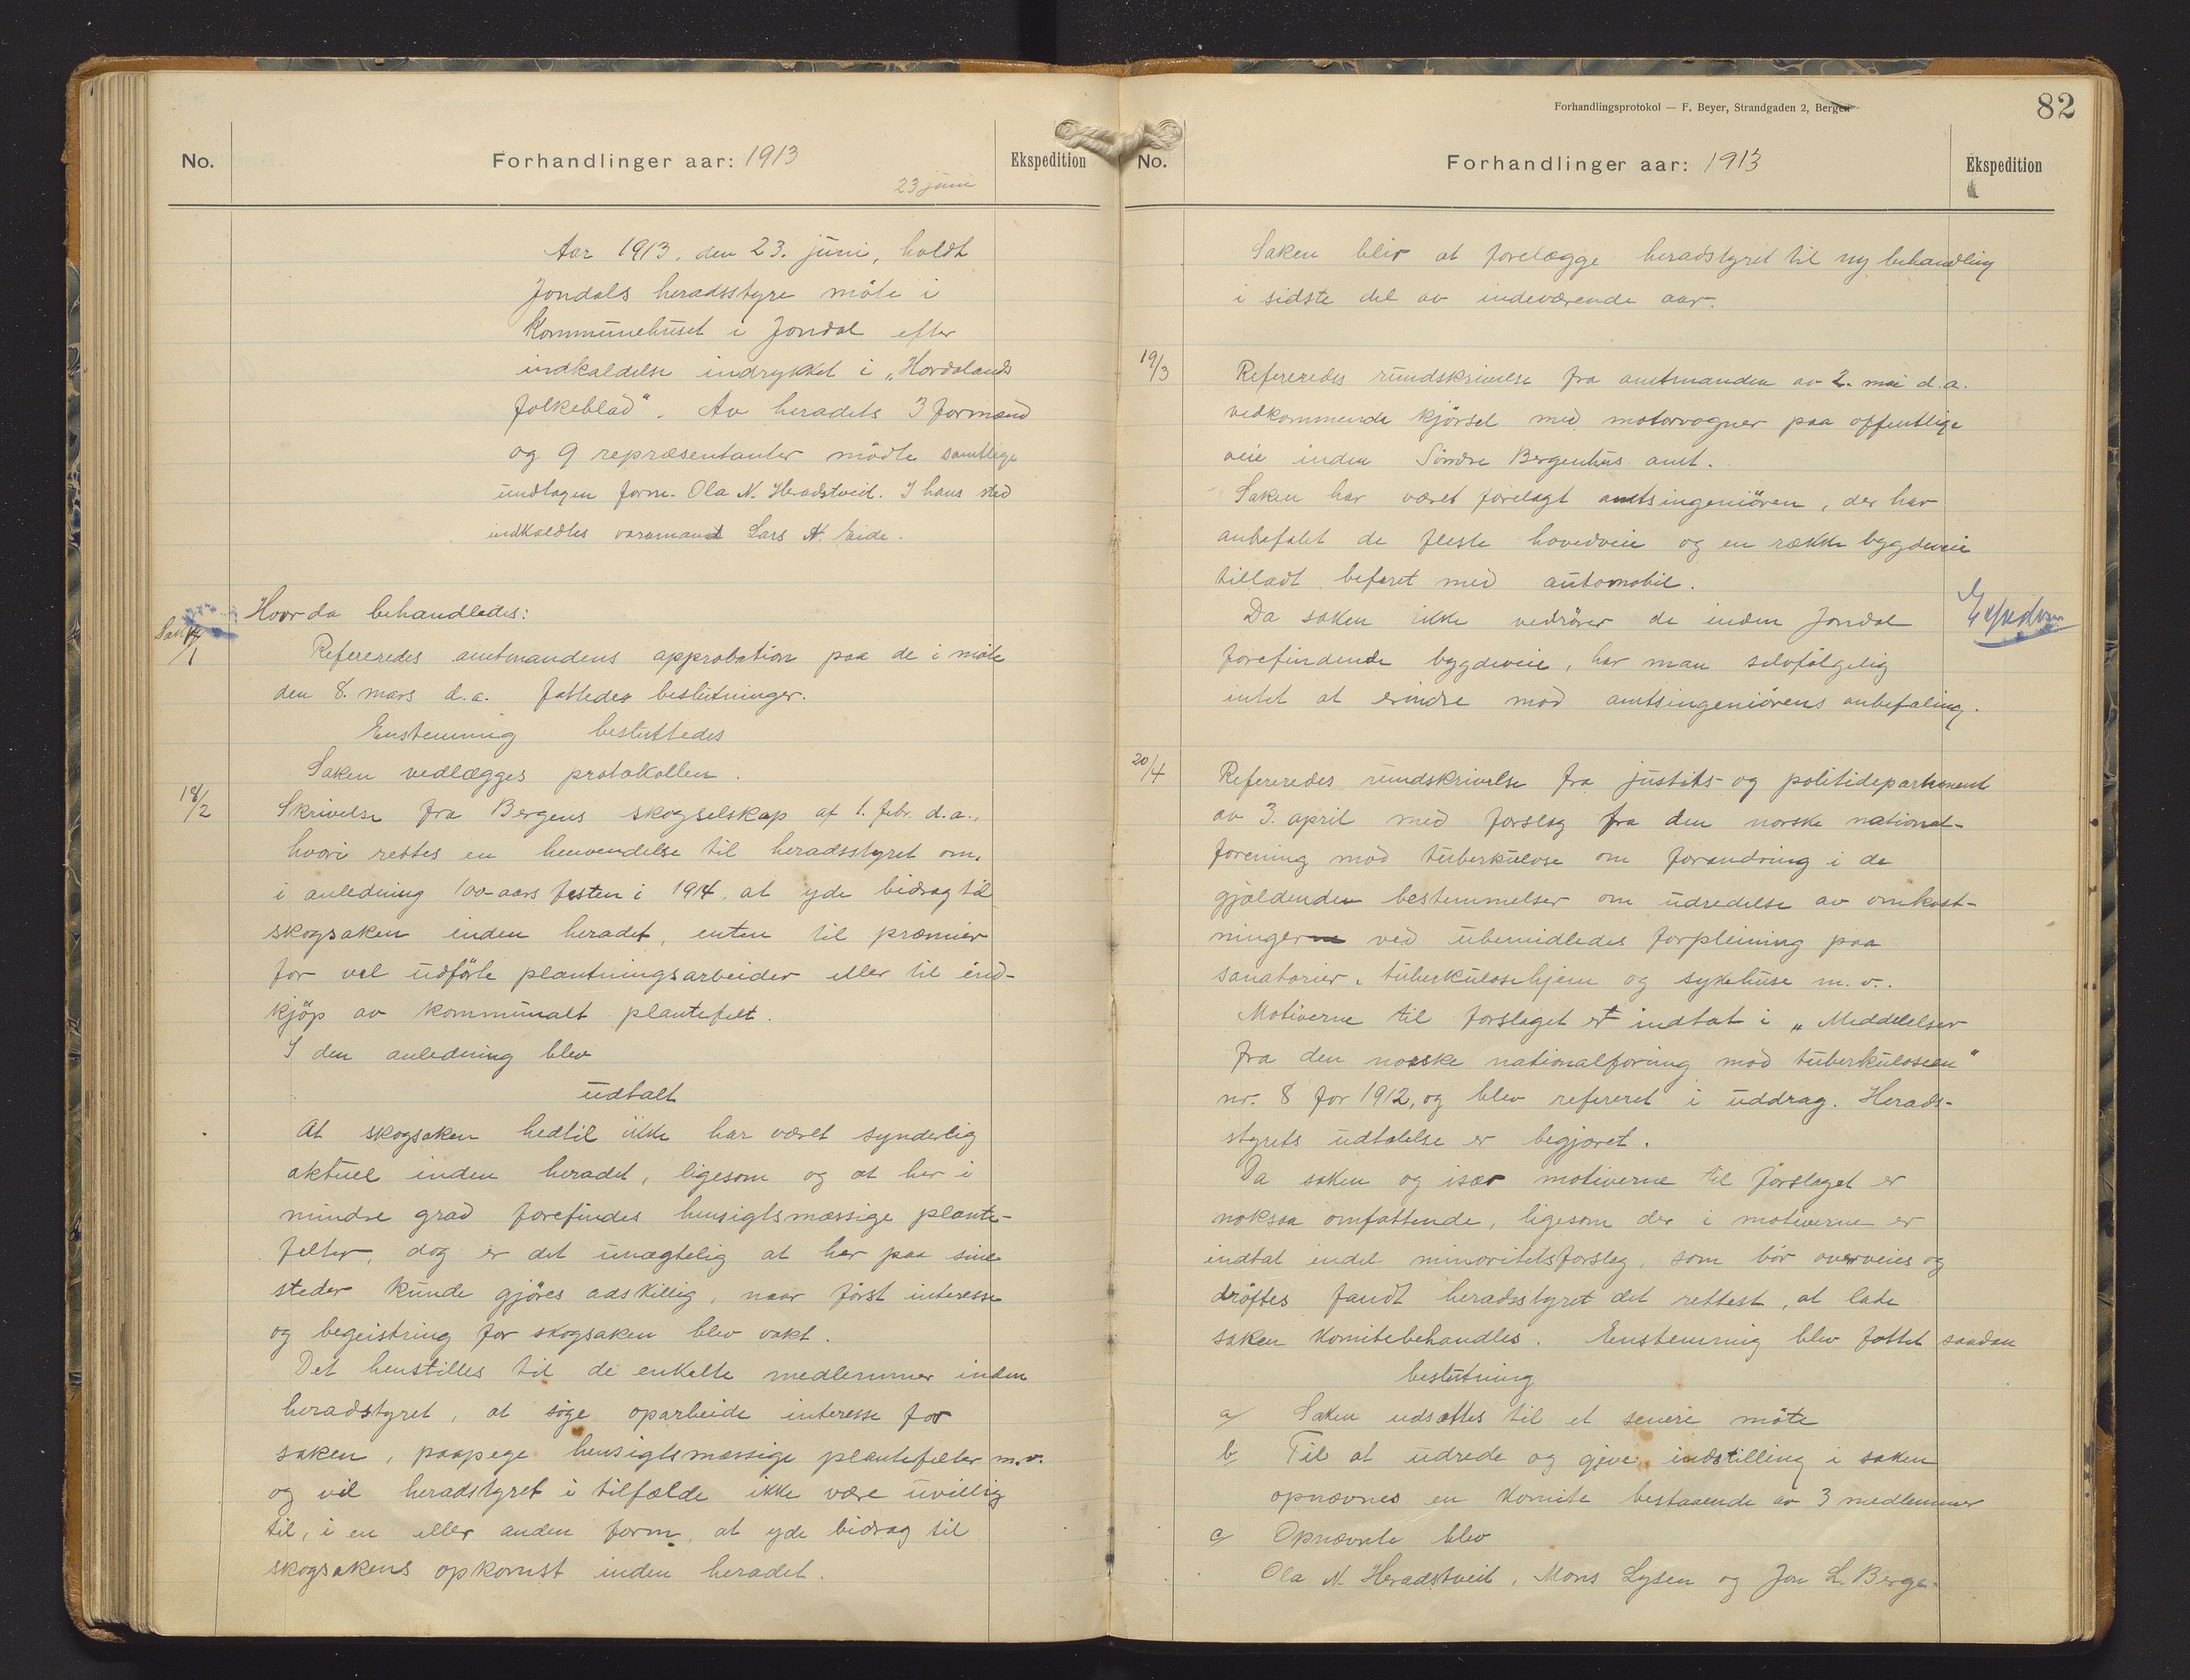 No.
Forhandlinger aar: 1913
Ekspedition
23 juni
Aar 1913, den 23. juni, holdt
Jondals heradsstyre möte i
kommunehuset i Jondal efter
indkaldelse indrykket i „Hordalands
folkeblad“. Av heradets 3 formænd
og 9 repræsentanter mödte samtlige
undtagen form. Ola N. Heradstveit. I hans sted
indkaldtes varamand Lars N. Eide.
Hvor da behandledes:
Sak 17/1
Refereredes amtmandens approbation paa de i möte
den 8. mars d.a. fattedes beslutninger.
Enstemmig besluttedes
Saken vedlægges protokollen.
18/2
Skrivelse fra Bergens skogselskap af 1. febr. d.a.,
hvori rettes en henvendelse til heradsstyret om,
i anledning 100-aars festen i 1914, at yde bidrag til
skogsaken inden heradet, enten til præmier
for vel udförte plantningsarbeider eller til ind-
kjöp av kommunalt plantefelt.
I den anledning blev
udtalt
At skogsaken hedtil ikke har været synderlig
aktuel inden heradet, ligesom og at her i
mindre grad forefindes hensigtsmæssige plante-
felter, dog er det unægtelig at her paa sine
steder kunde gjöres adskillig, naar först interesse
og begeistring for skogsaken blev vakt.
Det henstilles til de enkelte medlemmer inden
heradstyret, at söge oparbeide interesse for
saken, paapege hensigtsmæssige plantefelter m.v.
og vil heradstyret i tilfælde ikke være uvillig
til, i en eller anden form, at yde bidrag til
skogsakens opkomst inden heradet.
Forhandlingsprotokol — F. Beyer, Strandgaden 2, Bergen
82
No.
Forhandlinger aar: 1913
Ekspedition
Saken blir at forelægge heradstyret til ny behandling
i sidste del av indeværende aar.
19/3
Refereredes rundskrivelse fra amtmanden av 2. mai d.a.
vedkommende kjörsel med motorvogner paa offentlige
veie inden Söndre Bergenhus amt.
Saken har været forelagt amtsingeniören, der har
anbefalet de fleste hovedveie og en række bygdeveie
tilladt beferet med automobil.
Da saken ikke vedrörer de inden Jondal
forefindende bygdeveie, har man selvfölgelig
intet at erindre mod amtsingeniörens anbefaling.
20/4
Refereredes rundskrivelse fra justits- og politidepartement
av 3. april med forslag fra den norske national-
forening mod tuberkulose om forandring i de
gjældenden bestemmelser om udredelse av omkost-
ningerne ved ubemidledes forpleining paa
sanatorier, tuberkulosehjem og sykehuse m.v.
Motiverne til forslaget er indtat i „Meddelelser
fra den norske nationalforing mod tuberkulosen“
nr. 8 for 1912, og blev referert i uddrag. Herads-
styrets udtalelse er begjæret.
Da saken og især motiverne til forslaget er
noksaa omfattende, ligesom der i motiverne er
indtat endel minoritetsforslag, som bör overveies og
dröftes fandt heradsstyret det rettest, at late
saken komitebehandles. Enstemmig blev fattet saadan
beslutning
a/ Saken udsættes til et senere möte
b/ Til at udrede og give indstilling i saken
opnævnes en komite bestaaende av 3 medlemmer
c/ Opnævnte blev
Ola N. Heradstveit, Mons Lysen og Jon L. Berge.